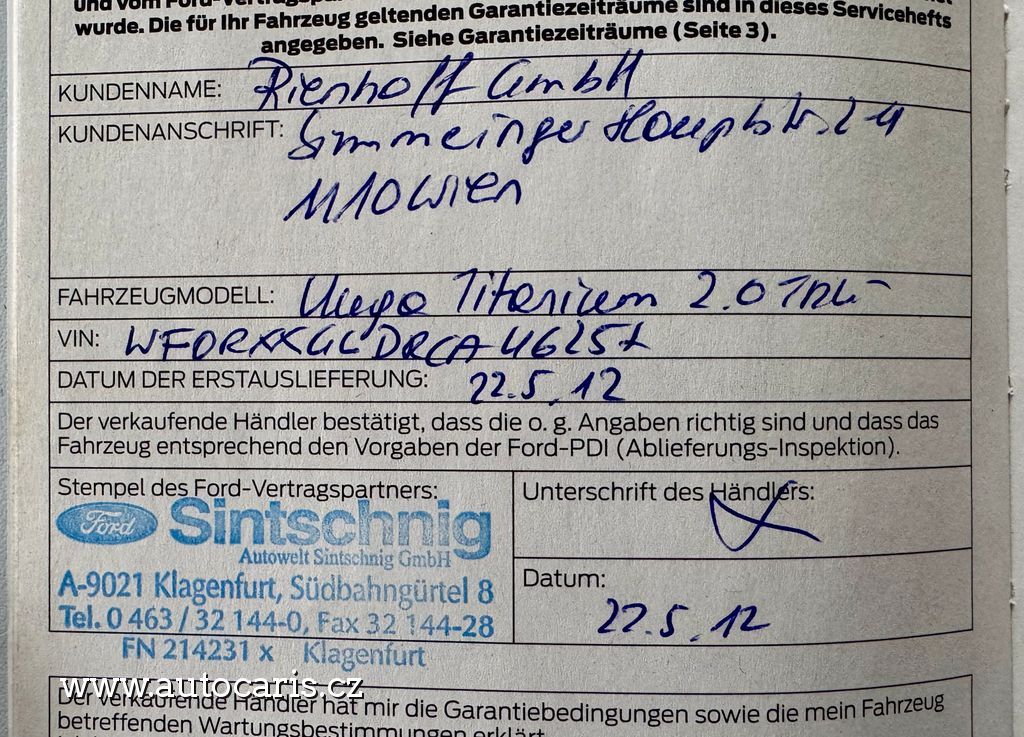 und vom Ford-Vertragspar
wurde. Die für Ihr Fahrzeug geltenden Garantiezeiträume sind in dieses Servicehefts
angegeben. Siehe Garantiezeiträume (Seite 3).
KUNDENNAME: Rienhoff GmbH
KUNDENANSCHRIFT: Simmeringer Hauptstr. 24
1110 Wien
FAHRZEUGMODELL: Kuga Titanium 2.0 TDCi
VIN: WF0RXXGCDRCA46257
DATUM DER ERSTAUSLIEFERUNG: 22.5.12
Der verkaufende Händler bestätigt, dass die o. g. Angaben richtig sind und dass das
Fahrzeug entsprechend den Vorgaben der Ford-PDI (Ablieferungs-Inspektion).
Stempel des Ford-Vertragspartners:
Ford Sintschnig
Autowelt Sintschnig GmbH
A-9021 Klagenfurt, Südbahngürtel 8
Tel. 0 463 / 32 144-0, Fax 32 144-28
FN 214231 x Klagenfurt
Unterschrift des Händlers:
Datum:
22.5.12
www.autocaris.cz
Der verkaufende Händler hat mir die Garantiebedingungen sowie die mein Fahrzeug
betreffenden Wartungsbestimmungen erklärt